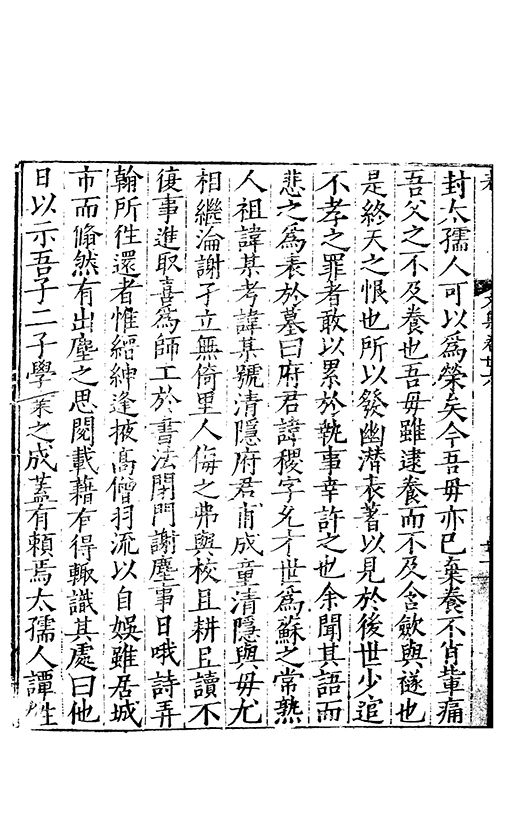 封太孺人可以爲榮矣今吾毋亦已棄養不肖輩痛
吾父之不及養也吾毋雖逮養而不及含歛與襚也
是終天之恨也所以發幽潜表著以見於後世少逭
不孝之罪者敢以累於執事幸許之也余聞其語而
悲之爲表於墓曰府君諱稷字允才世爲蘇之常熟
人祖諱某考諱某號清隱府君甫成童清隱與毋尤
相繼淪謝孑立無倚里人侮之弗與校且耕且讀不
復事進取喜爲師工於書法閉門謝塵事日哦詩弄
翰所徃還者惟縉紳逢掖髙僧羽流以自娛雖居城
市而翛然有出塵之思閱載藉有得輙識其處曰他
日以示吾子二子學業之成蓋有賴焉太孺人譚姓